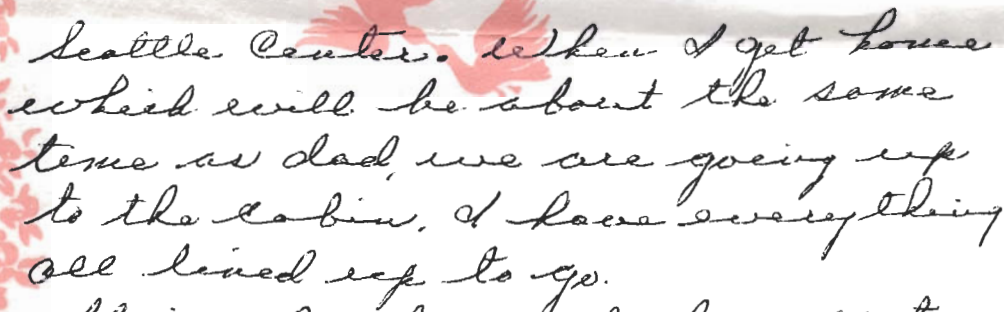 Seattle Center. When I get home
which will be about the same
time as dad, we are going up
to the cabin. I have everything
all lined up to go.